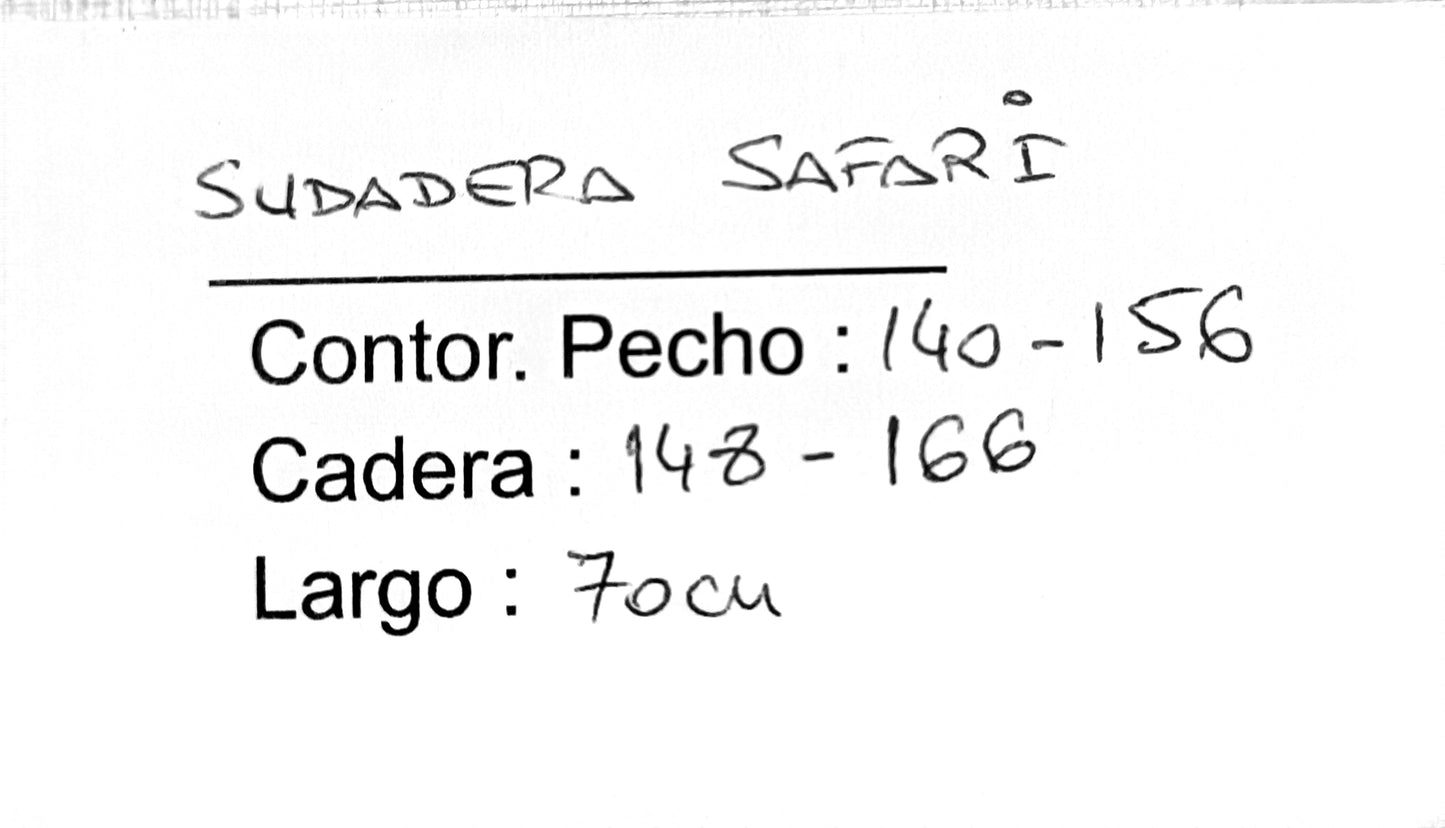 SUDADERA SAFARI
Contor. Pecho : 140 - 156
Cadera : 148 - 166
Largo : 70cm